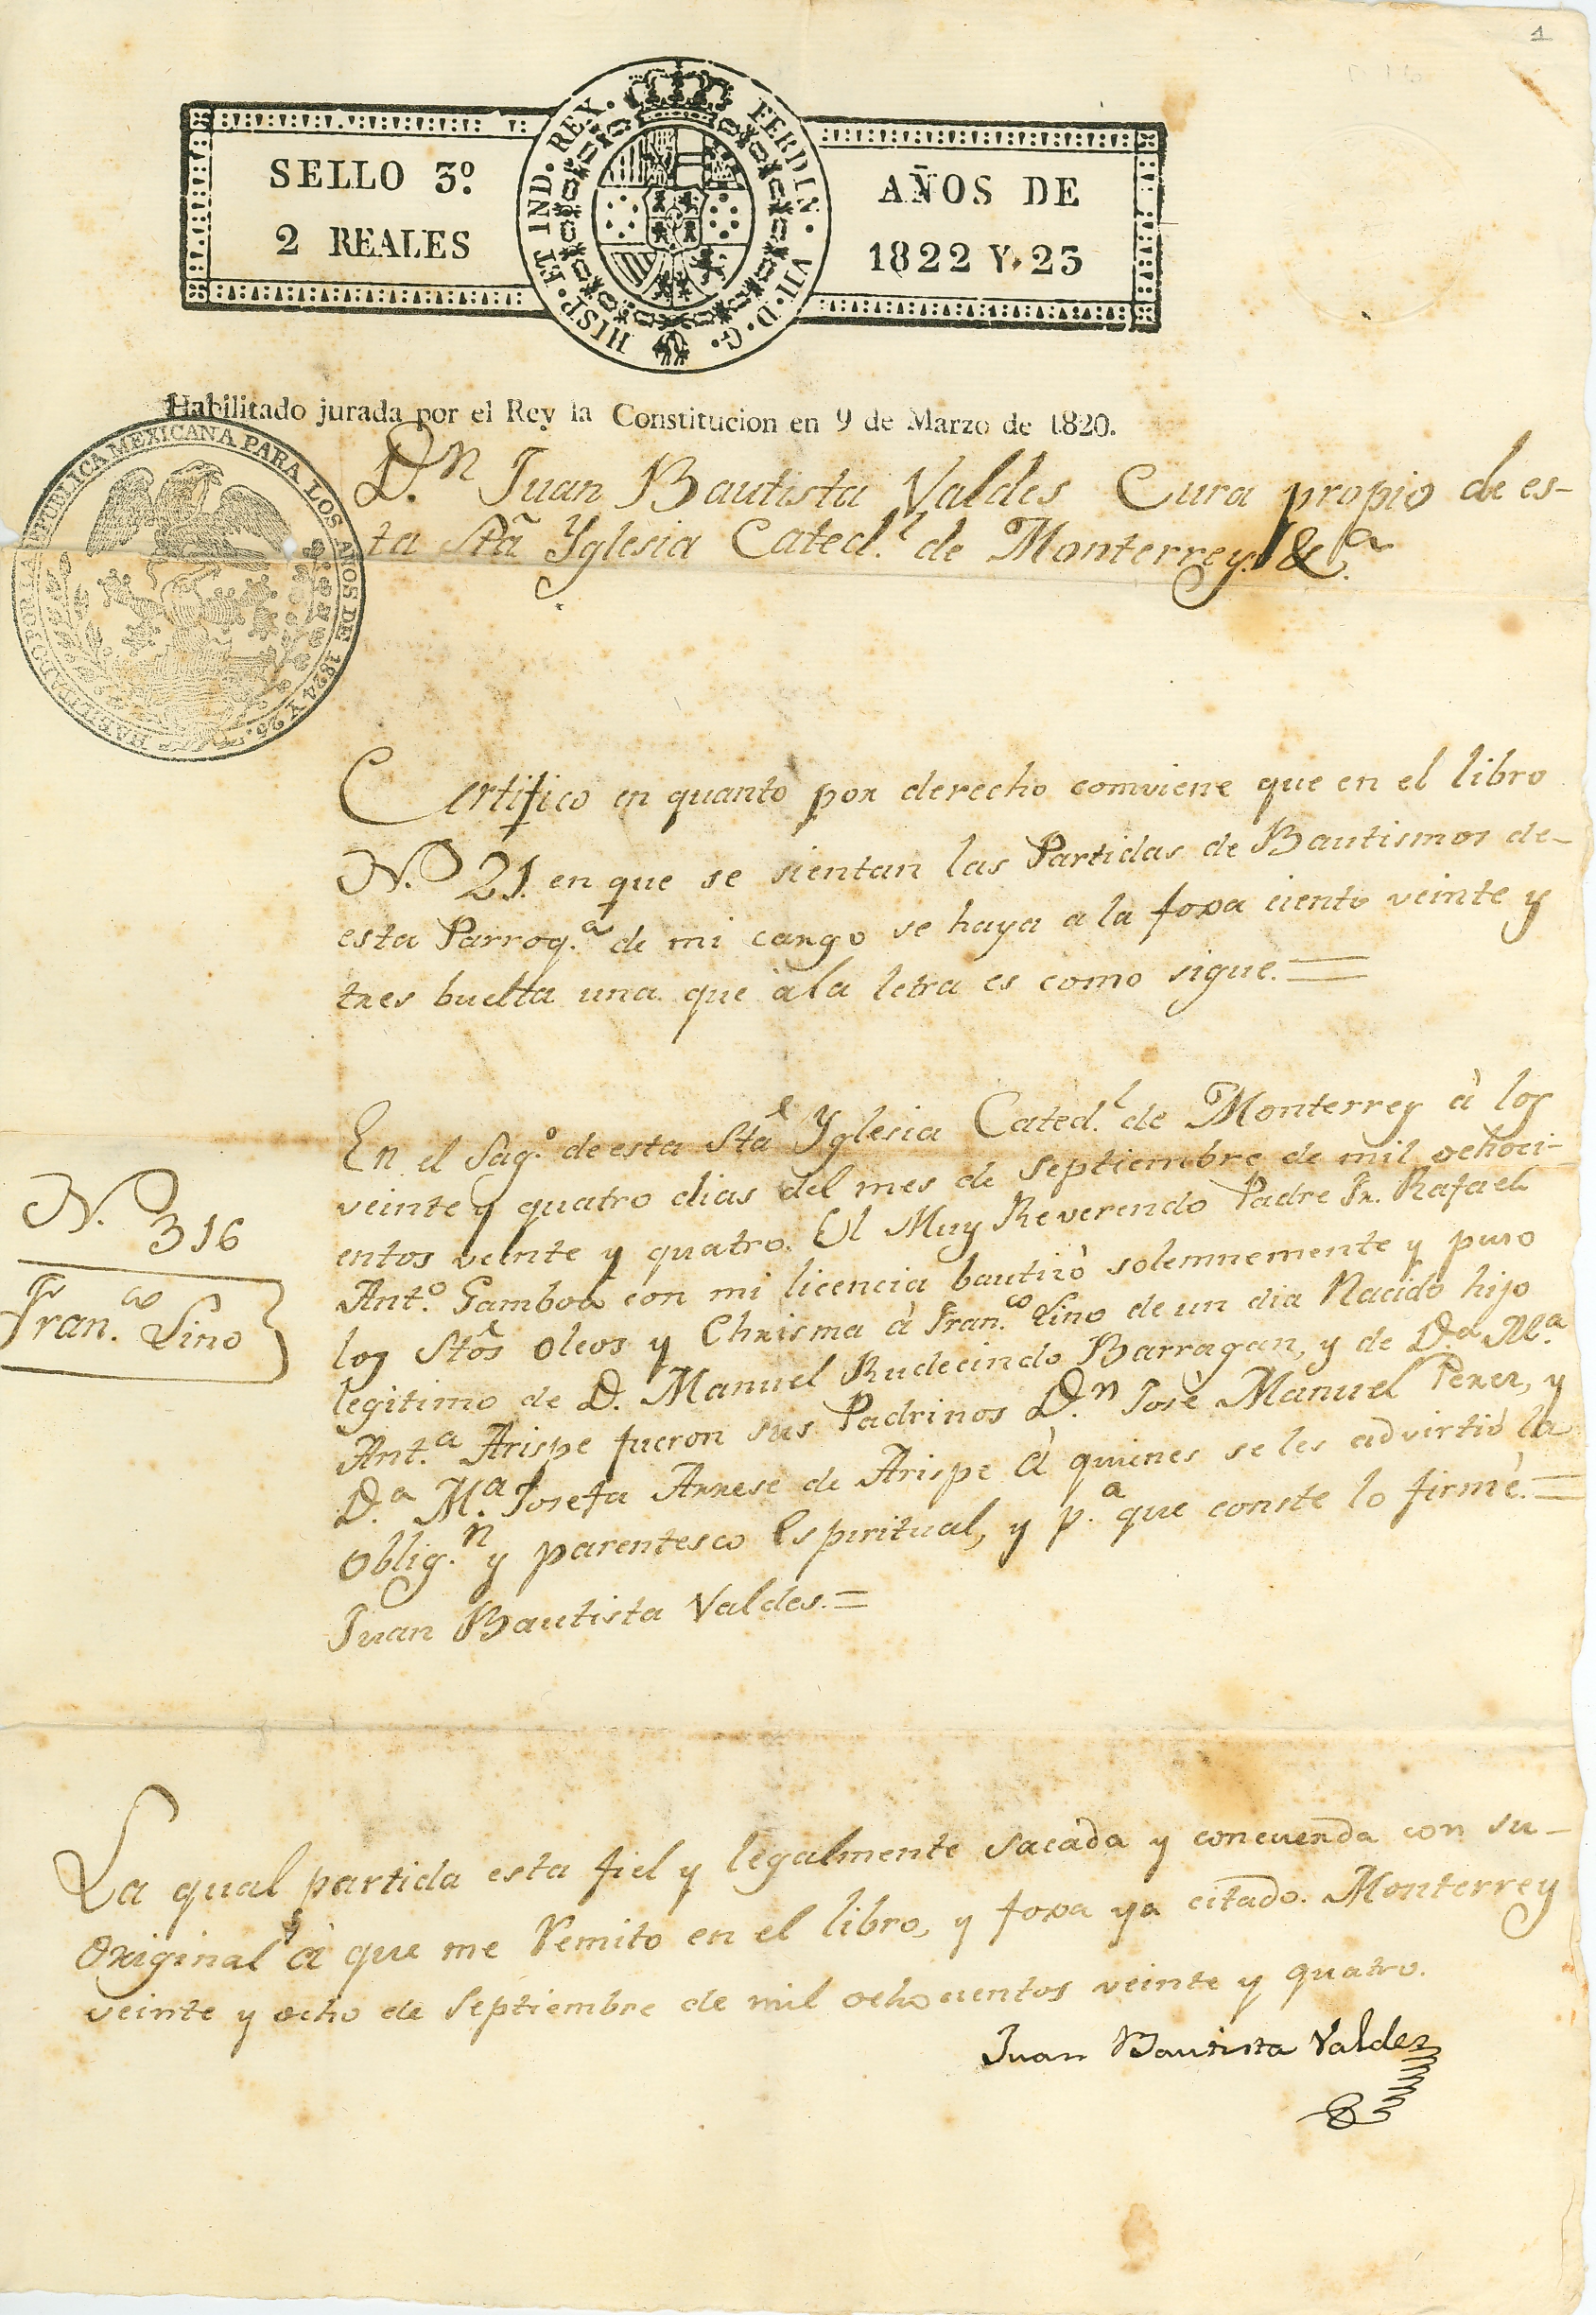 1
SELLO 3º.
2 REALES
HISP. ET IND. REX. FERDIN. VII. D. G.
AÑOS DE
1822 Y 23
Habilitado jurada por el Rey la Constitucion en 9 de Marzo de 1820.
HABILITADO POR LA REPUBLICA MEXICANA PARA LOS AÑOS DE 1824 Y 25.
D.n Juan Bautista Valdes Cura propio de es-
ta Stã Yglesia Cated.l de Monterrey. &.a
Certifico en quanto por derecho comviene que en el libro
N.o 21. en que se sientan las Partidas de Bautismos de-
esta Parroq.a de mi cargo se haya a la foxa ciento veinte y
tres buelta una que àla letra es como sigue. =
En el Sag.o de esta Sta Yglesia Cated.l de Monterrey à los
veinte y quatro dias del mes de Septiembre de mil ochoci-
entos veinte y quatro. El Muy Reverendo Padre Fr. Rafael
Ant.o Gamboa con mi licencia bautizò solemnemente y puso
los Stos Oleos y Chrisma à Fran.co Lino de un dia Nacido hijo
legitimo de D. Manuel Rudecindo Barragan, y de D.a M.a
Ant.a Arispe fueron sus Padrinos D.n José Manuel Perez, y
D.a M.a Josefa Arrese de Arispe à quienes se les advirtió la
Oblig.n y parentesco Espiritual, y p.a que conste lo firmé. =
Juan Bautista Valdes. =
N.o 316
Fran.co Lino
La qual partida esta fiel y legalmente sacada y concuerda con su-
Original à que me Remito en el libro, y foxa ya citado. Monterrey
veinte y ocho de Septiembre de mil ochocientos veinte y quatro.
Juan Bautista Valdes